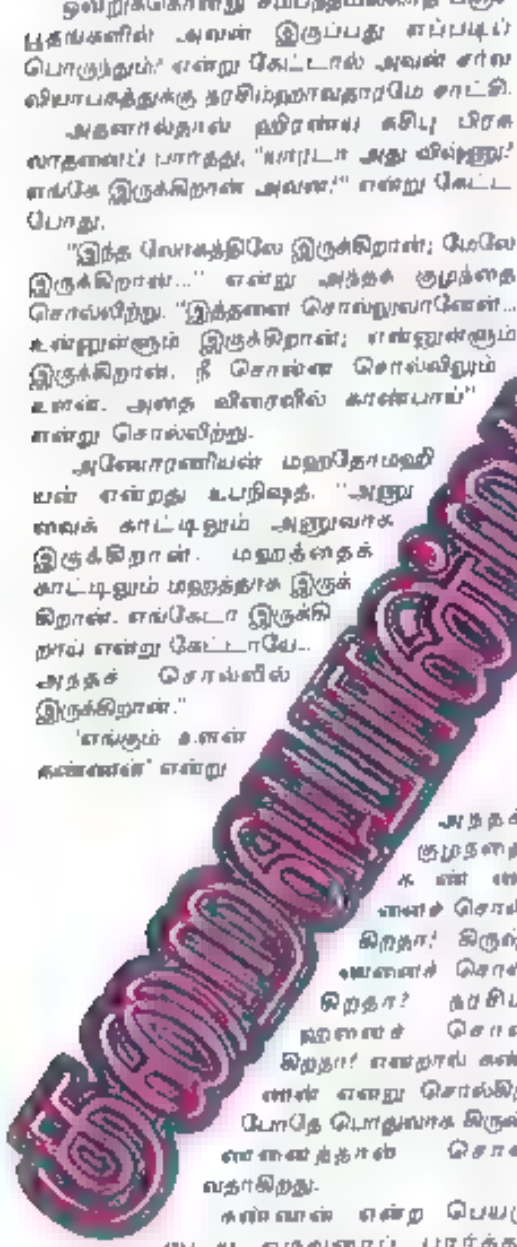 பூதங்களில் அவன் இருப்பது எப்படிப்
பொருந்தும்? என்று கேட்டால் அவன் சர்வ
வியாபகத்துக்கு நரசிம்ஹாவதாரமே சாட்சி.
அதனால்தான் ஹிரண்ய கசிபு பிரக
லாதனைப் பார்த்து, "யாரடா அது விஷ்ணு?
எங்கே இருக்கிறான் அவன்?" என்று கேட்ட
போது,
"இந்த லோகத்திலே இருக்கிறான்; மேலே
இருக்கிறான்..." என்று அந்தக் குழந்தை
சொல்லிற்று. "இத்தனை சொல்லுவானேன்...
உன்னுள்ளும் இருக்கிறான்; என்னுள்ளும்
இருக்கிறான். நீ சொன்ன சொல்லிலும்
உளன். அதை விரைவில் காண்பாய்"
என்று சொல்லிற்று.
அணோரணீயன் மஹதோமஹி
யன் என்றது உபநிஷத். "அணு
வைக் காட்டிலும் அணுவாக
இருக்கிறான். மஹத்தைக்
காட்டிலும் மஹத்தாக இருக்
கிறான். எங்கேடா இருக்கி
றான் என்று கேட்டாயே...
அந்தச் சொல்லில்
இருக்கிறான்."
'எங்கும் உளன்
கண்ணன்' என்று
அந்தக்
குழந்தை
க ண் ண
னைச் சொல்
கிறதா? கிருஷ்
ணனைச் சொல்
கிறதா? நரசிம்
ஹனைச் சொல்
கிறதா? என்றால் கண்
ணன் என்று சொல்கிற
போதே பொதுவாக கிருஷ்
ணனைத்தான் சொல்
வதாகிறது.
கண்ணன் என்ற பெயரு